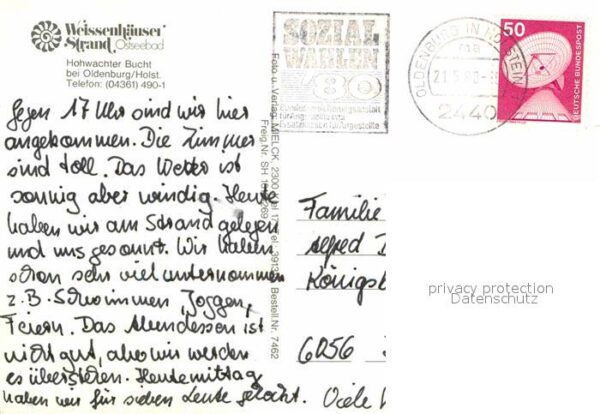 Weissenhäuser
Strand Ostseebad
Hohwachter Bucht
bei Oldenburg/Holst.
Telefon: (04361) 490-1
Gegen 17 Uhr sind wir hier
angekommen. Die Zimmer
sind toll. Das Wetter ist
sonnig aber windig. Heute
haben wir am Strand gelegen
und uns gesonnt. Wir haben
schon sehr viel unternommen
z.B. Schwimmen, Joggen,
Feiern. Das Abendessen ist
nicht gut, aber wir werden
es überstehen. Heute mittag
haben wir für sieben Leute gekocht. Viele
Foto u. Verlag: MIELCK, 2300 Kiel 17, Bestell.Nr. 7462
Freig.Nr. SH
SOZIAL
WAHLEN
80
OLDENBURG IN HOLSTEIN
ma
21.5.80
2440
50
DEUTSCHE BUNDESPOST
Familie
Alfred
Königsb
6056
privacy protection
Datenschutz